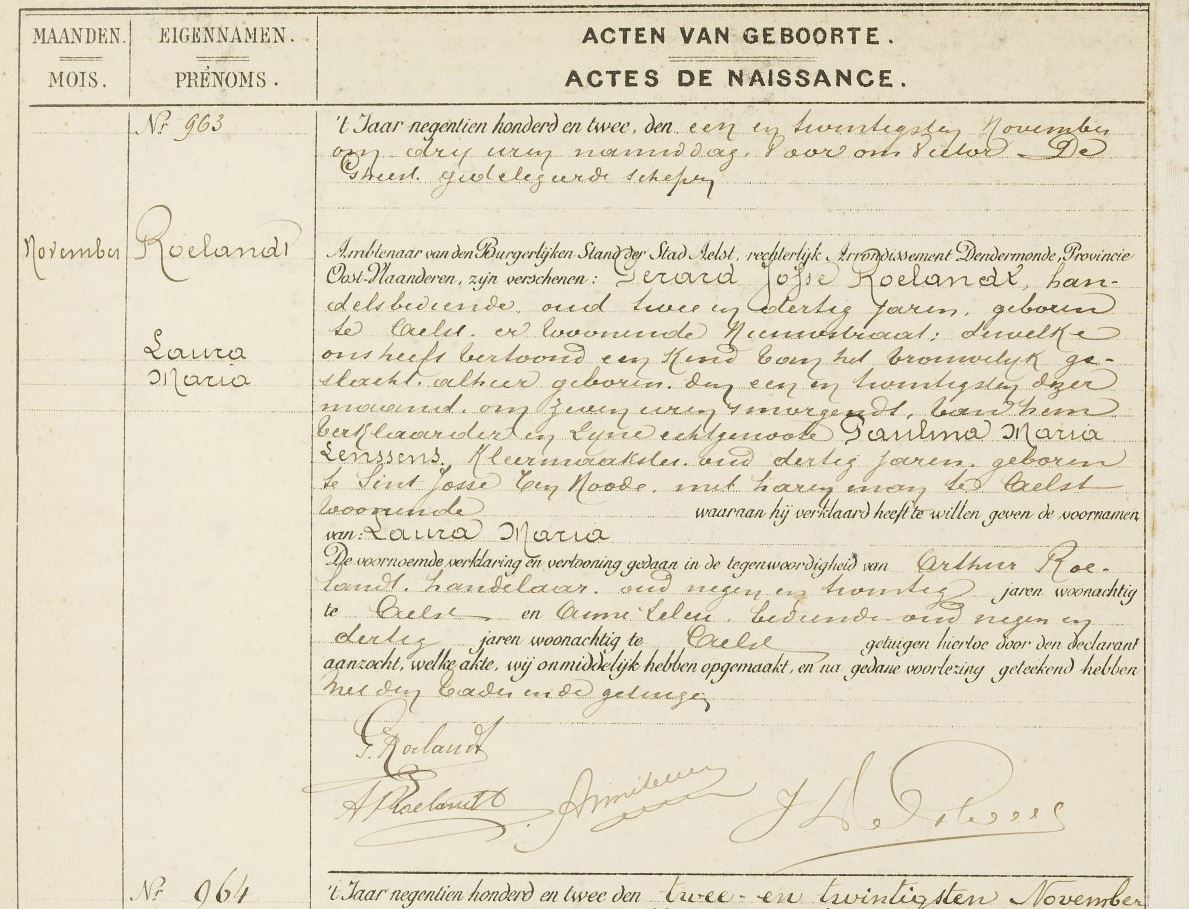 MAANDEN. EIGENNAMEN. ACTEN VAN GEBOORTE.
MOIS. PRÉNOMS. ACTES DE NAISSANCE.
Nr 963
't Jaar negentien honderd en twee, den een en twintigsten November
om dry uren namiddag. Voor ons Victor De
Gheest. gedelegeerde schepen
November
Roelandt
Laura
Maria
Ambtenaar van den Burgerlijken Stand der Stad Aelst, rechterlijk Arrondissement Dendermonde, Provincie
Oost-Vlaanderen, zijn verschenen: Gerard Josse Roelandt, han-
delsbediende, oud twee en dertig jaren, geboren
te Aelst. er woonende Nieuwstraat; dewelke
ons heeft vertoond een Kind van het vrouwelyk ge-
slacht. alhier geboren. den een en twintigsten dezer
maand. om zeven uren smorgends, van hem
verklaarder en zyne echtgenoote Paulina Maria
Lenssens. Kleermaakster. oud dertig jaren. geboren
te Sint Josse ten Noode. met haren man te Aelst
woonende waaraan hij verklaard heeft te willen geven de voornamen
van: Laura Maria
De voornoemde verklaring en vertooning gedaan in de tegenwoordigheid van Arthur Roe-
landt. handelaar. oud negen en twintig jaren woonachtig
te Aelst en Aimé Leleu. bediende oud negen en
dertig jaren woonachtig te Aelst getuigen hiertoe door den declarant
aanzocht, welke akte, wij onmiddelijk hebben opgemaakt, en na gedane voorlezing geteekend hebben
met den vader en de getuigen
G. Roelandt
A Roelandt
Nr 964
't Jaar negentien honderd en twee den twee-en twintigsten November